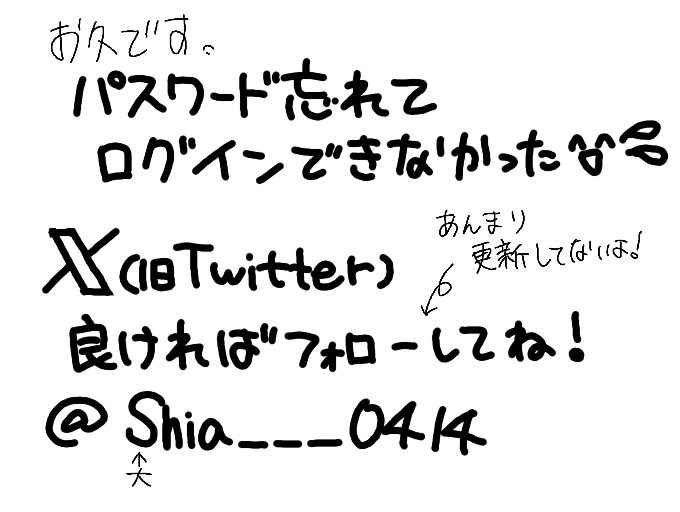 お久です。
パスワード忘れて
ログインできなかった^o^
あんまり
更新してないよ!
X(旧Twitter)
良ければフォローしてね!
@Shia___0414
↑
大